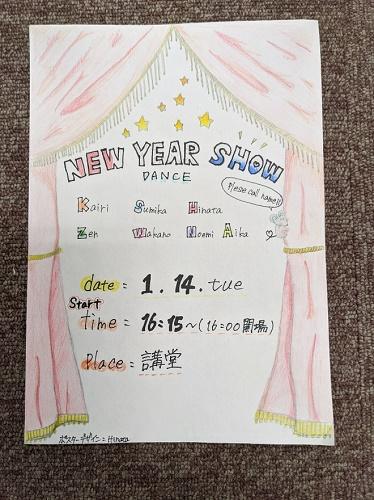 NEW YEAR SHOW
DANCE
Plese call name!!
Kairi Sumika Hinata
Zen Wakano Noemi Aika
date = 1.14.tue
Start
time = 16:15～(16:00開場)
Place = 講堂
ポスターデザイン = Hinata